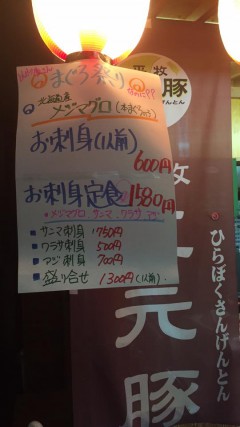 まぐろ祭り
北海道産
メジマグロ(本まぐろの子)
お刺身(1人前)
600円
お刺身定食 1580円
メジマグロ、サンマ、ワラサ、アジ
■ サンマ刺身 750円
■ ワラサ刺身 500円
■ アジ刺身 700円
■ 盛り合せ 1300円(1人前)
平牧
三元豚
ひらぼくさんげんとん
豚
げんとん